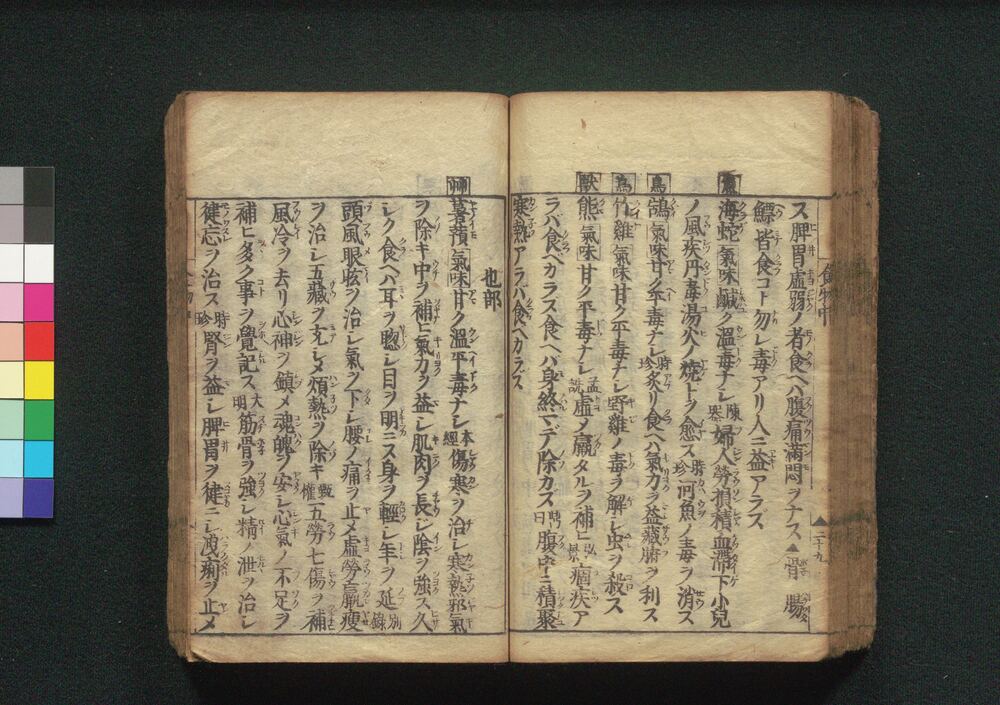 食物中
ス脾胃虚弱ノ者食ヘハ腹痛滿悶ヲナス▲骨腸
鰾皆食コト勿レ毒アリ人ニ益アラズ
海蛇氣味鹹ク溫毒ナシ藏器婦人勞損積血滯下小兒
ノ風疾丹毒湯火ノ燒トヲ愈ス時珍河魚ノ毒ヲ消ス
鳥
鵠氣味甘ク平毒ナシ時珍炙リ食ヘハ氣力ヲ益藏腑ヲ利ス
鳥
竹雞氣味甘ク平毒ナシ野雞ノ毒ヲ解シ虫ヲ殺ス
獸
熊氣味甘ク平毒ナシ孟詵虛メ羸タルヲ補ヒ弘景痼疾ア
ラバ食ヘカラス食ヘバ身終マデ除カズ日腹中ニ積聚
寒熱アラバ食ヘカラズ
二十九
也部
艸
薯蕷氣味甘ク溫平毒ナシ本經傷寒ヲ治シ寒熱邪氣
ヲ除キ中ヲ補ヒ氣力ヲ益シ肌肉ヲ長シ陰ヲ強ス久
シク食ヘバ耳ヲ聰シ目ヲ明ニス身ヲ輕シ年ヲ延別錄
頭風眼眩ヲ治シ氣ヲ下シ腰ノ痛ヲ止メ虛勞羸瘦
ヲ治シ五藏ヲ充シメ煩熱ヲ除キ甄權五勞七傷ヲ補
風冷ヲ去リ心神ヲ鎮メ魂魄ヲ安シ心氣ノ不足ヲ
補ヒ多ク事ヲ覺記ス大明筋骨ヲ強シ精ノ泄ヲ治シ
健忘ヲ治ス時珍腎ヲ益シ脾胃ヲ健ニシ洩痢ヲ止メ